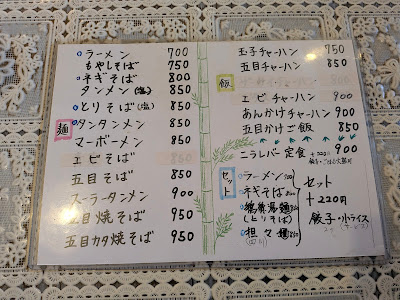 麺
ラーメン 700
もやしそば 750
ネギそば 800
タンメン(塩) 850
とりそば(塩) 850
タンタンメン 850
マーボーメン 850
エビそば 850
五目そば 850
スーラータンメン 900
五目焼そば 950
五目カタ焼そば 950
飯
玉子チャーハン 750
五目チャーハン 850
エビチャーハン 900
あんかけチャーハン 900
五目かけご飯 850
ニラレバー定食 900
セット
ラーメン
ネギそば
(とりそば)
担々麺
セット
+220円
餃子・小ライス